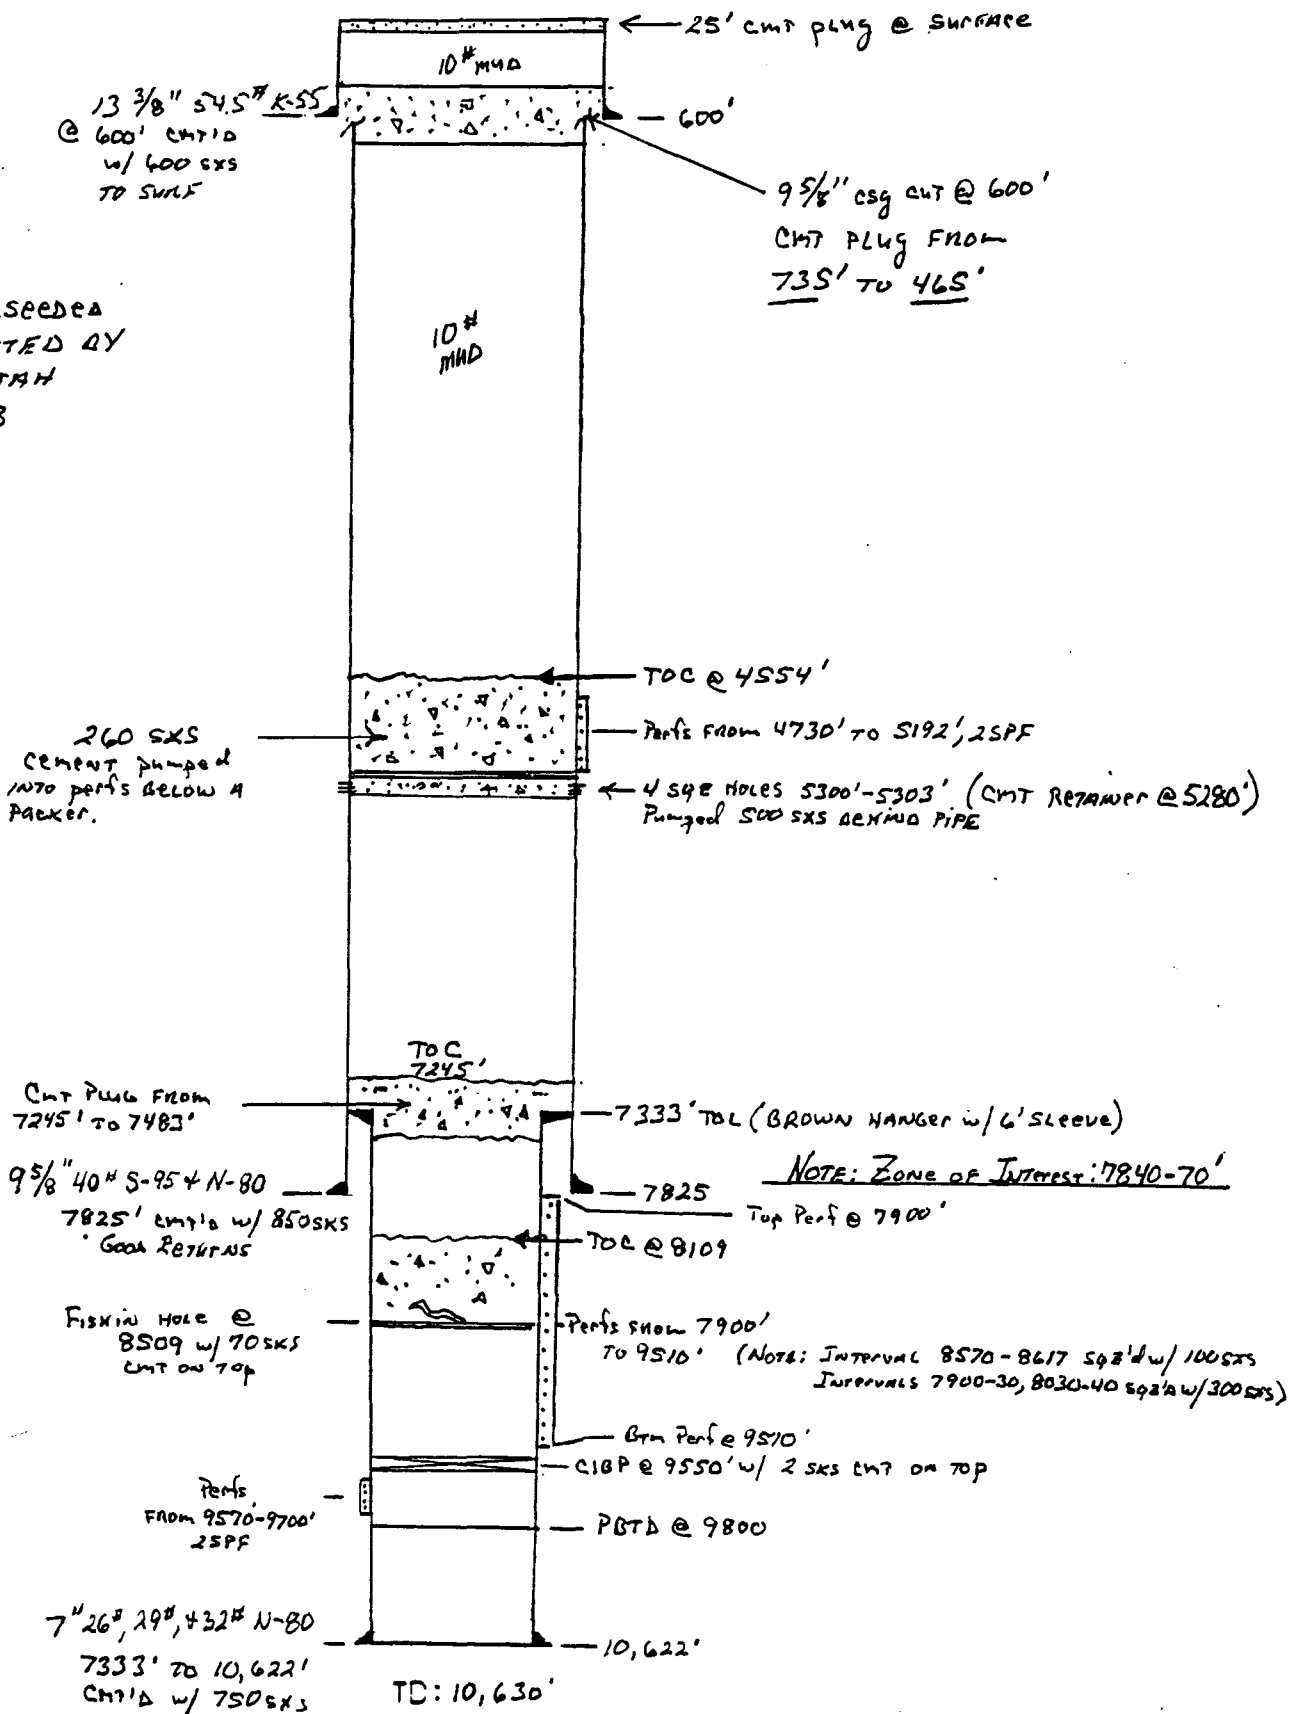 25' CMT PLUG @ SURFACE
10# MUD
13 3/8" 54.5# K-55
@ 600' CMT'D
w/ 600 SXS
TO SURF
600'
9 5/8" CSG CUT @ 600'
CMT PLUG FROM
735' TO 465'
SEEDED
TED BY
TAH
3
10#
MUD
TOC @ 4554'
260 SXS
CEMENT pumped
INTO perfs BELOW A
PACKER.
Perfs FROM 4730' TO 5192', 2SPF
4 SQZ HOLES 5300'-5303' (CMT RETAINER @ 5280')
Pumped 500 SXS BEHIND PIPE
TOC
7245'
CMT PLUG FROM
7245' TO 7483'
7333' TOL (BROWN HANGER w/ 6' SLEEVE)
9 5/8" 40# S-95 & N-80
7825' CMT'D w/ 850 SKS
GOOD RETURNS
NOTE: ZONE OF INTEREST: 7840-70'
7825
Top Perf @ 7900'
TOC @ 8109
FISH IN HOLE @
8509 w/ 70 SKS
CMT ON TOP
Perfs FROM 7900'
TO 9510' (NOTE: INTERVAL 8570-8617 SQZ'd w/ 100 SXS
INTERVALS 7900-30, 8030-40 SQZ'd w/ 300 SXS)
BTM Perf @ 9510'
CIBP @ 9550' w/ 2 SKS CMT ON TOP
Perfs
FROM 9570-9700'
2SPF
PBTD @ 9800
7" 26#, 29#, & 32# N-80
7333' TO 10,622'
CMT'D w/ 750 SXS
10,622'
TD: 10,630'